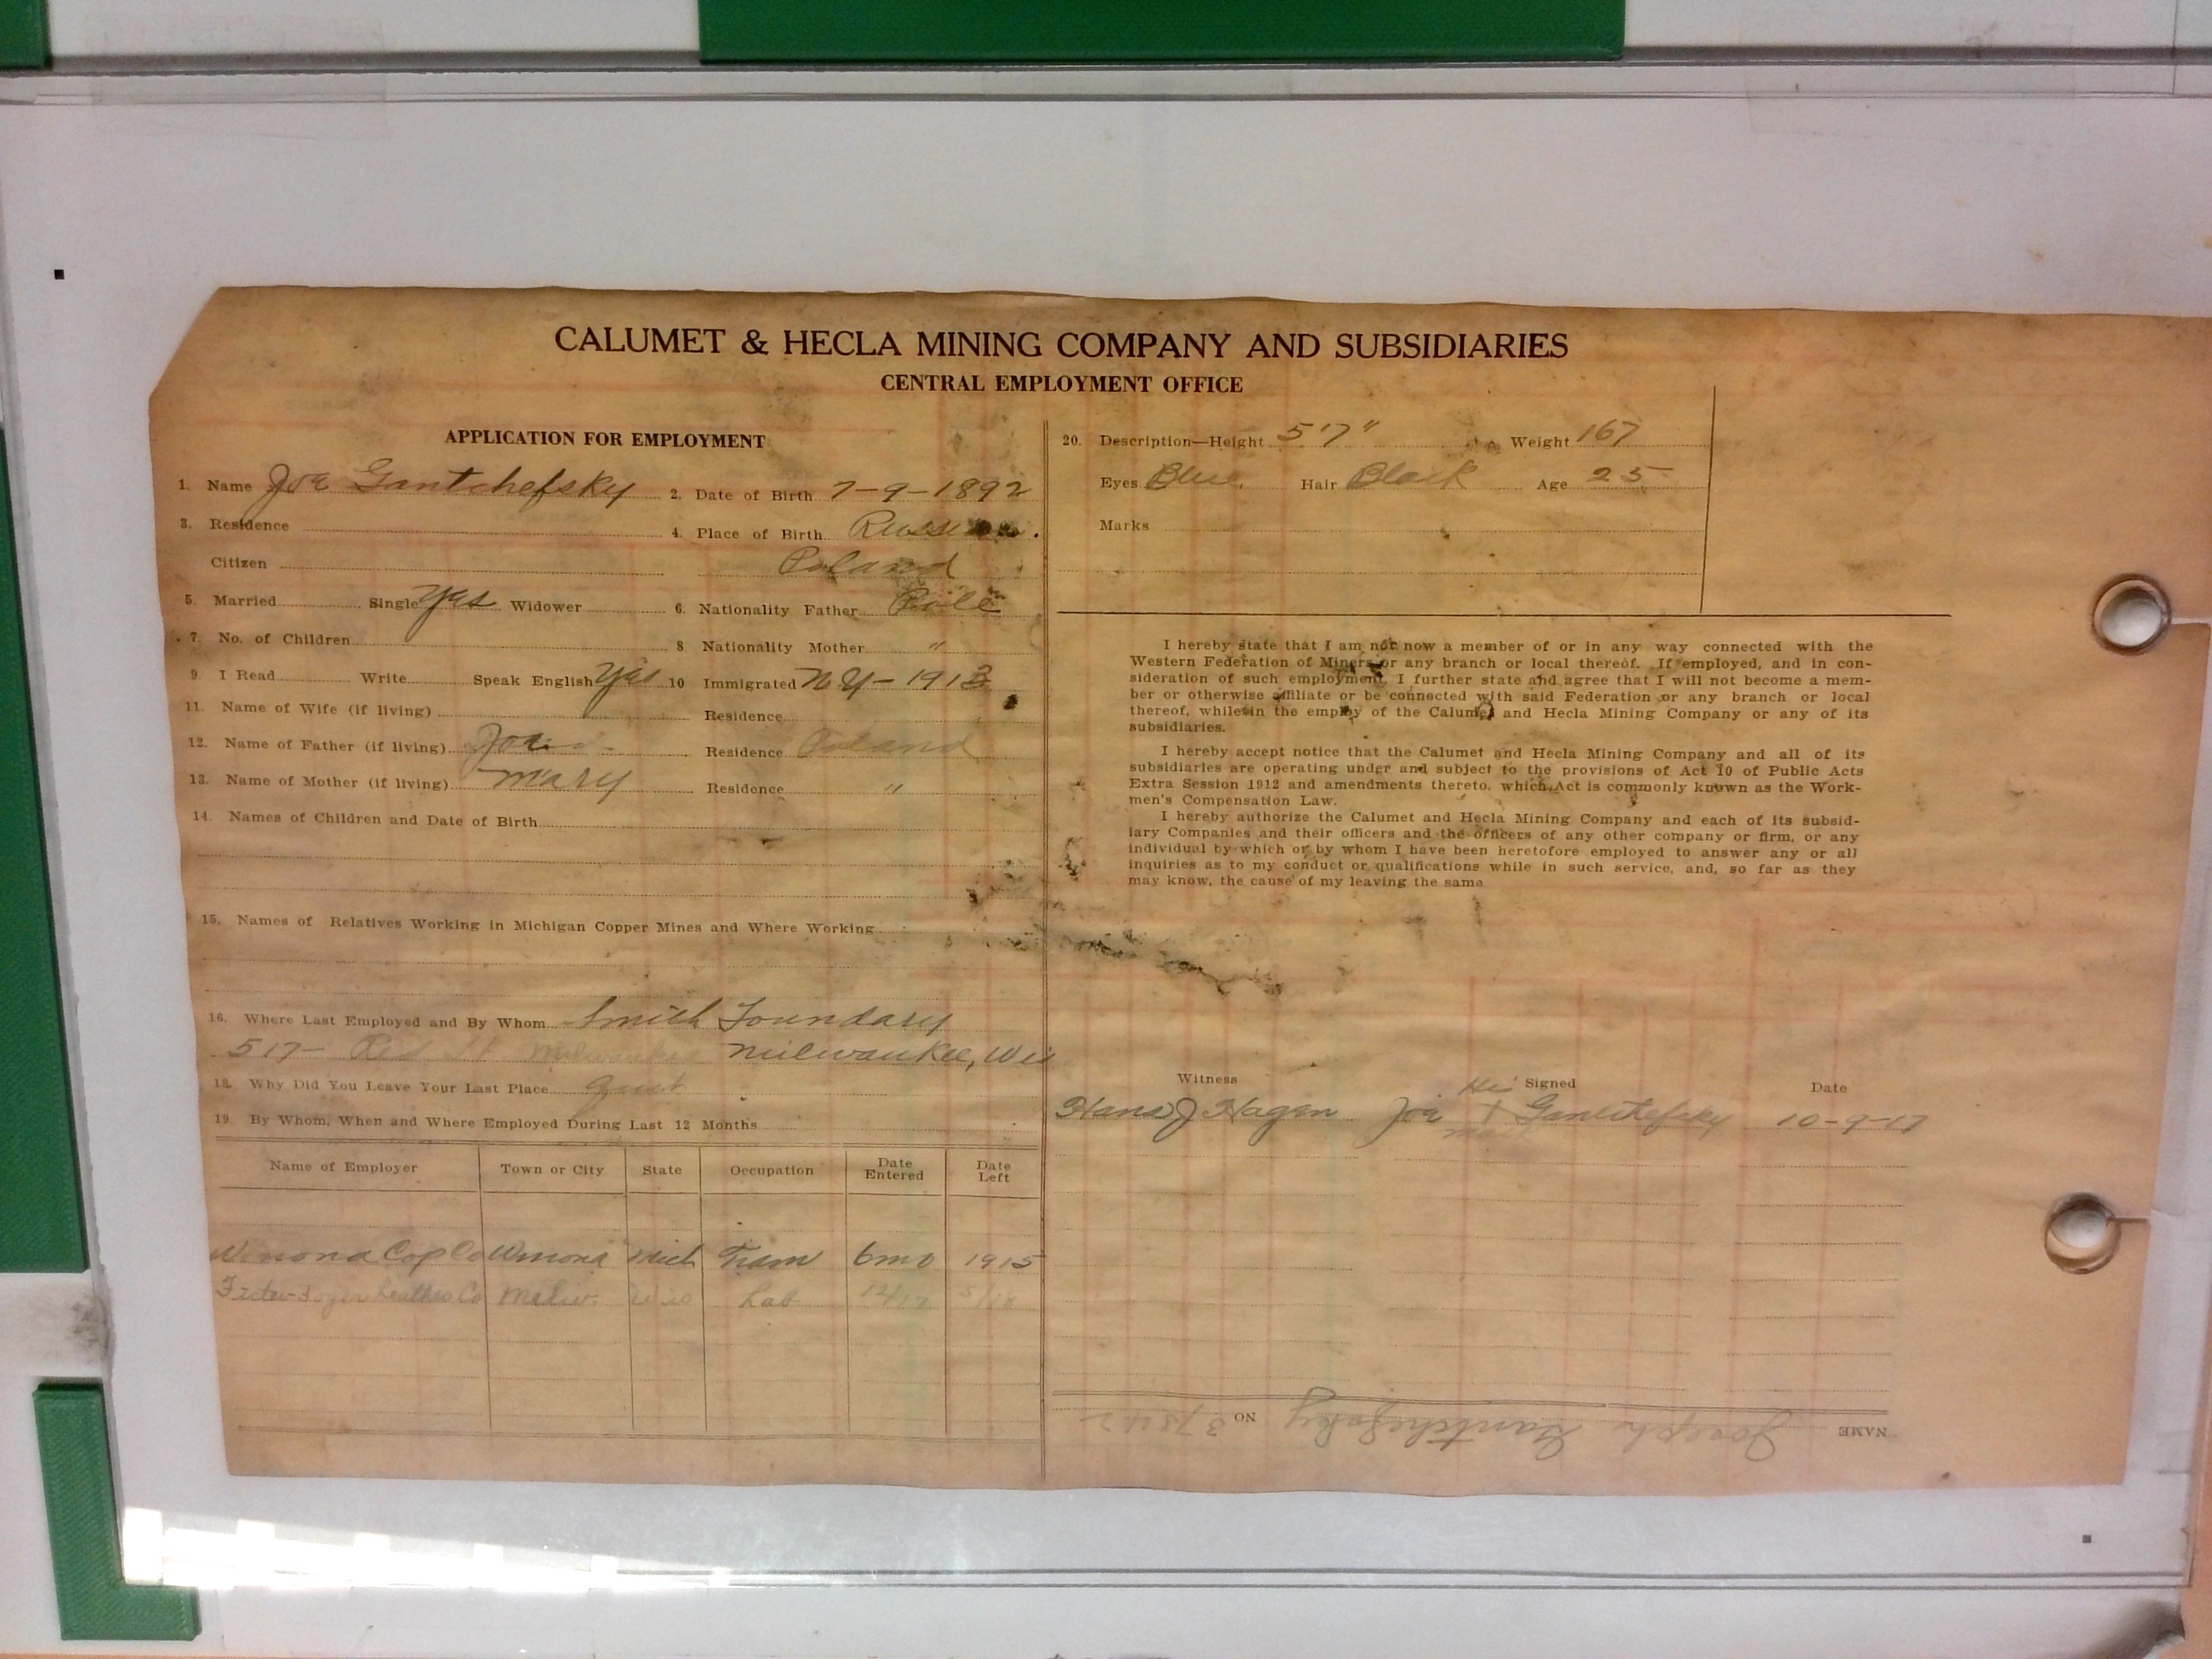 CALUMET & HECLA MINING COMPANY AND SUBSIDIARIES
CENTRAL EMPLOYMENT OFFICE
APPLICATION FOR EMPLOYMENT
1. Name Joe Gantchefsky 2. Date of Birth 7-9-1892
3. Residence 4. Place of Birth Russian
Citizen Poland
5. Married Single Yes Widower 6. Nationality Father Pole
7. No. of Children 8 Nationality Mother "
9 I Read Write Speak English Yes 10 Immigrated N Y - 1913
11. Name of Wife (if living) Residence
12. Name of Father (if living) Residence Poland
13. Name of Mother (if living) Mary Residence "
14. Names of Children and Date of Birth
15. Names of Relatives Working in Michigan Copper Mines and Where Working
16. Where Last Employed and By Whom Smith Foundary
517- Milwaukee Milwaukee, Wis
18. Why Did You Leave Your Last Place Quit
19. By Whom, When and Where Employed During Last 12 Months
Name of Employer Town or City State Occupation Date Entered Date Left
Winona Cop Co Winona Mich Tram 6 mo 1915
Leather Co Milw. Wis Lab
20. Description—Height 5'7" Weight 167
Eyes Blue Hair Black Age 25
Marks
I hereby state that I am not now a member of or in any way connected with the
Western Federation of Miners or any branch or local thereof. If employed, and in con-
sideration of such employment, I further state and agree that I will not become a mem-
ber or otherwise affiliate or be connected with said Federation or any branch or local
thereof, while in the employ of the Calumet and Hecla Mining Company or any of its
subsidiaries.
I hereby accept notice that the Calumet and Hecla Mining Company and all of its
subsidiaries are operating under and subject to the provisions of Act 10 of Public Acts
Extra Session 1912 and amendments thereto, which Act is commonly known as the Work-
men's Compensation Law.
I hereby authorize the Calumet and Hecla Mining Company and each of its subsid-
iary Companies and their officers and the officers of any other company or firm, or any
individual by which or by whom I have been heretofore employed to answer any or all
inquiries as to my conduct or qualifications while in such service, and, so far as they
may know, the cause of my leaving the same
Witness Signed Date
His
Hans J Hagen Joe X Gantchefsky 10-9-17
mark
NAME Joseph Gantchefsky NO 37842